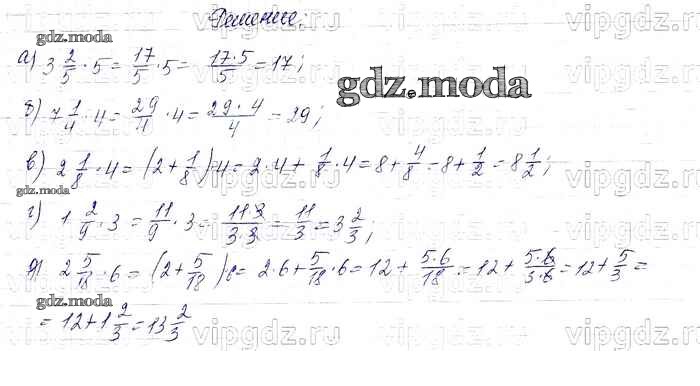 Решение.
а) 3 2/5 · 5 = 17/5 · 5 = 17·5/5 = 17;
б) 7 1/4 · 4 = 29/4 · 4 = 29·4/4 = 29;
в) 2 1/8 · 4 = (2 + 1/8) · 4 = 2 · 4 + 1/8 · 4 = 8 + 4/8 = 8 + 1/2 = 8 1/2;
г) 1 2/9 · 3 = 11/9 · 3 = 11·3/3·3 = 11/3 = 3 2/3;
д) 2 5/18 · 6 = (2 + 5/18) · 6 = 2·6 + 5/18 · 6 = 12 + 5·6/18 = 12 + 5·6/3·6 = 12 + 5/3 =
= 12 + 1 2/3 = 13 2/3
gdz.moda
gdz.moda
gdz.moda
gdz.moda
vipgdz.ru
vipgdz.ru
vipgdz.ru
vipgdz.ru
vipgdz.ru
vipgdz.ru
vipgdz.ru
vipgdz.ru
vipgdz.ru
vipgdz.ru
vipgdz.ru
vipgdz.ru